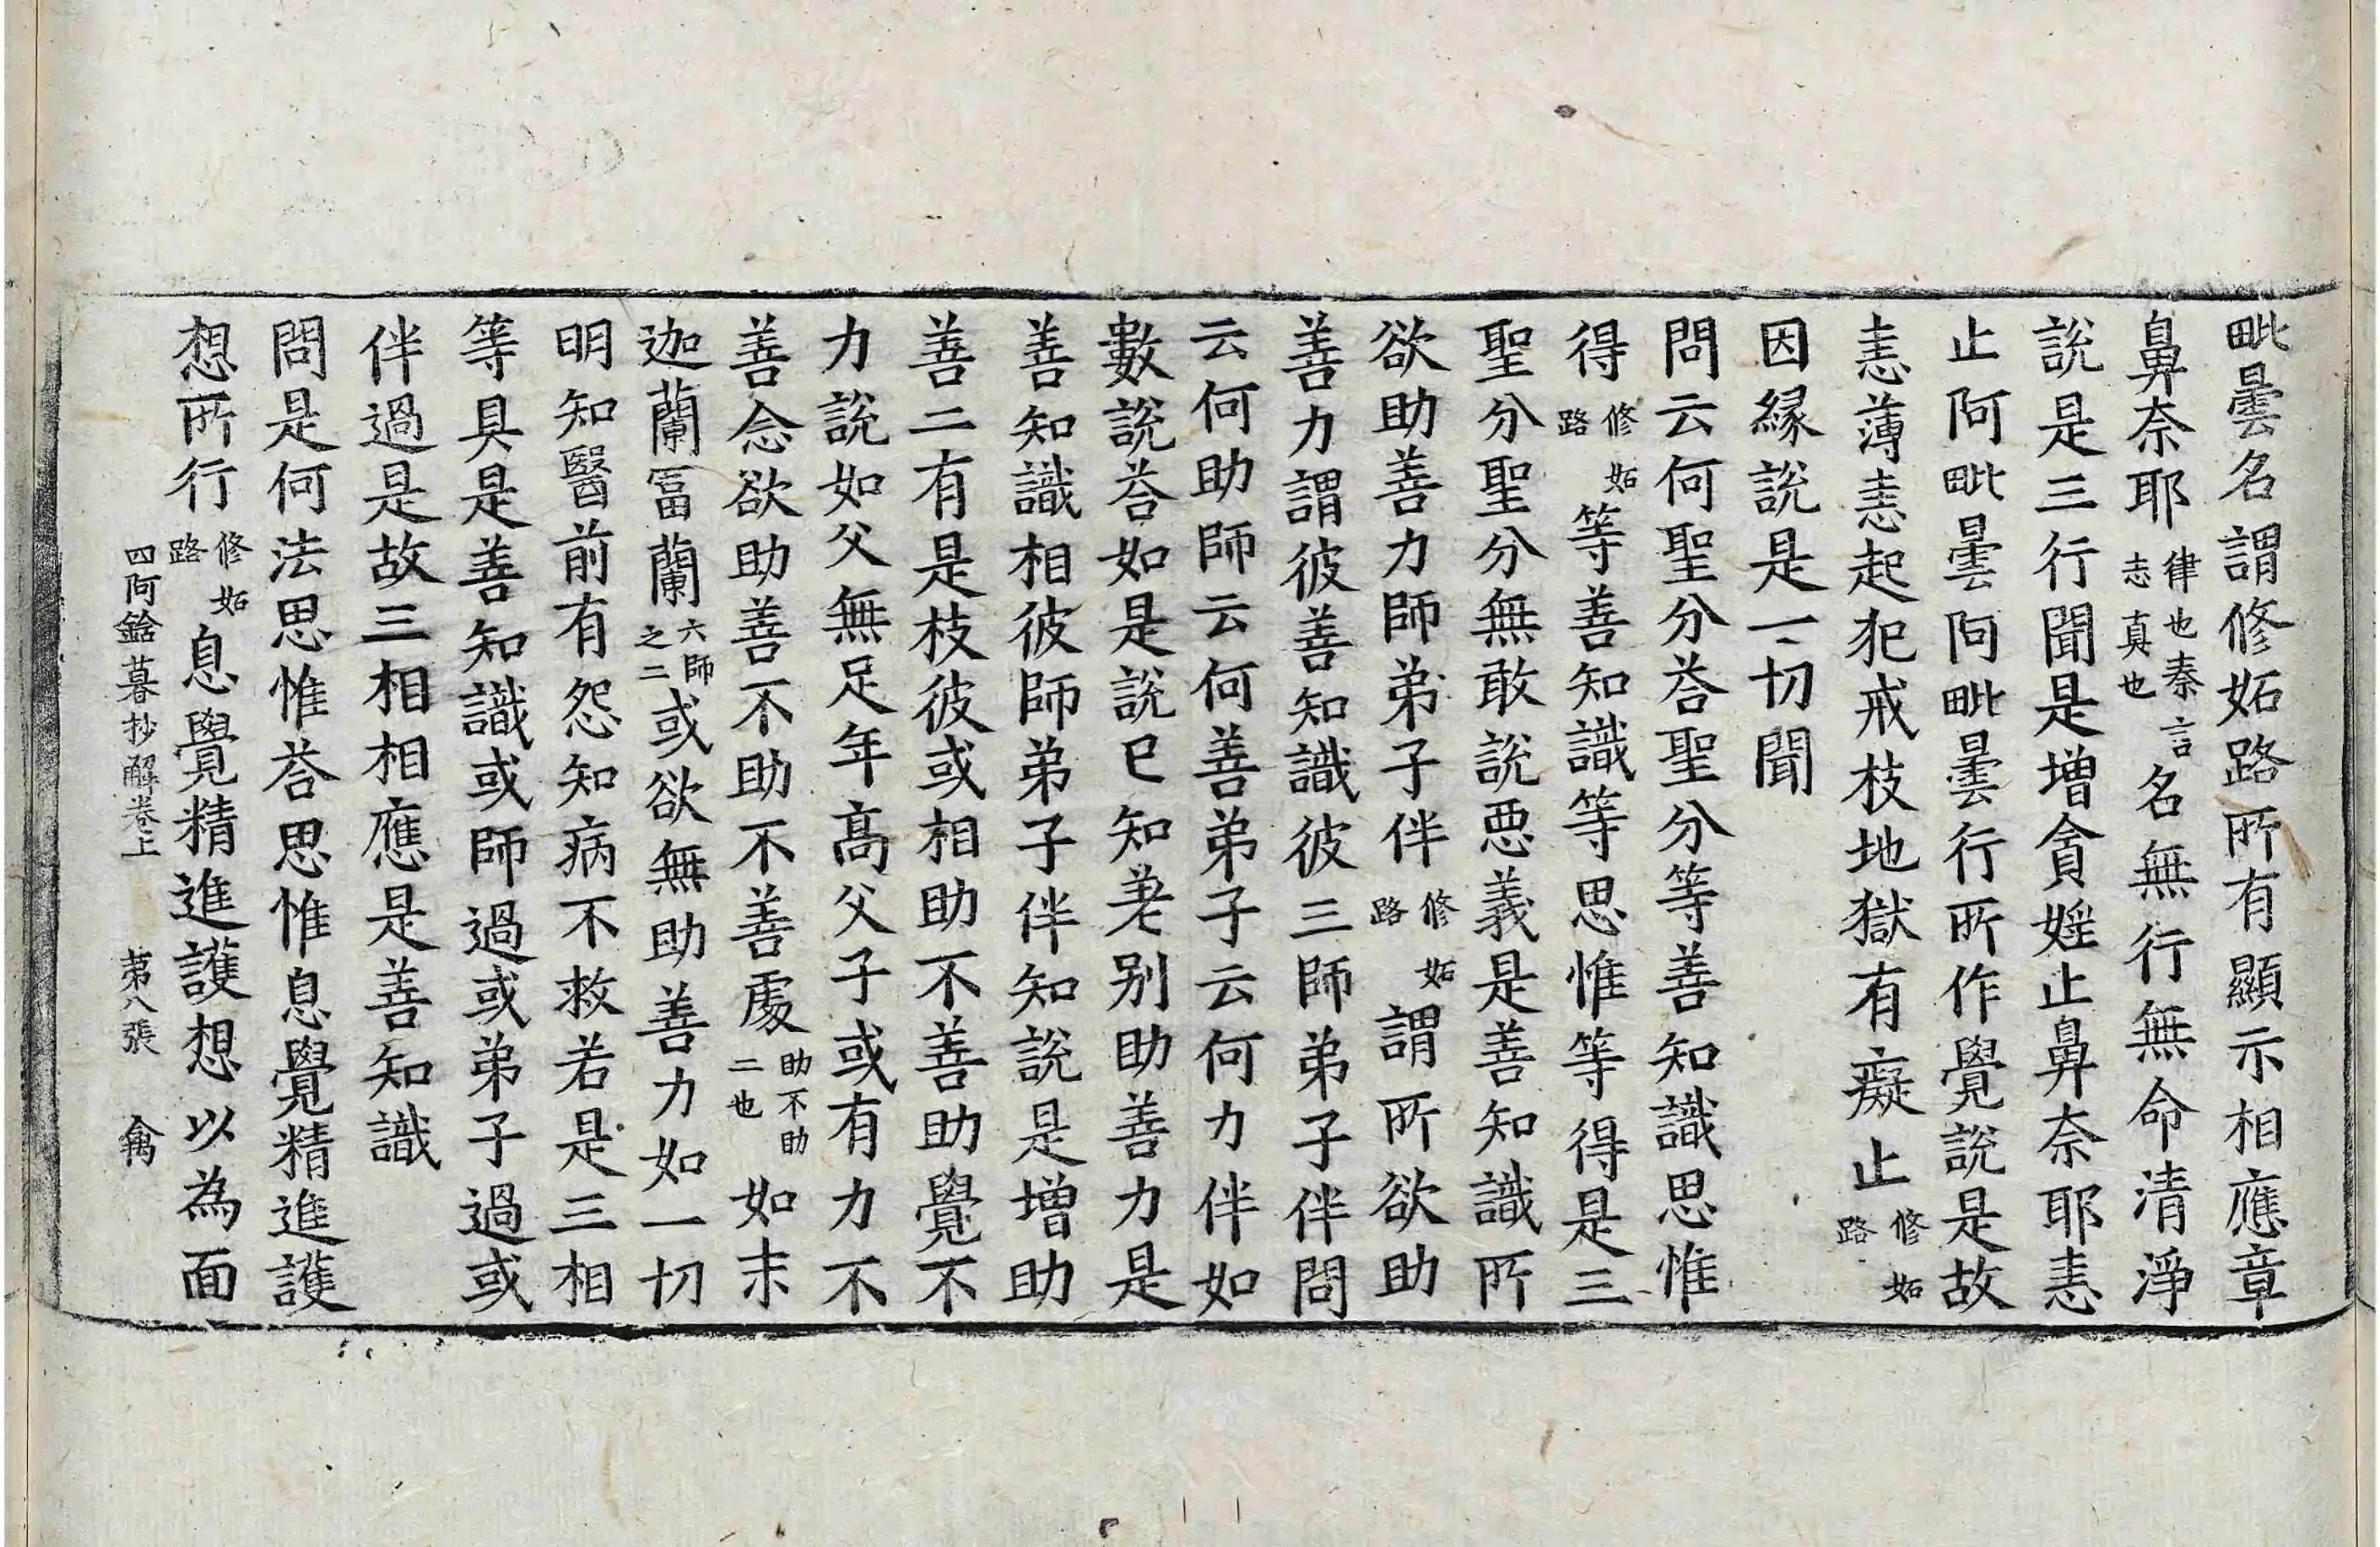 毗曇名謂修妬路所有顯示相應章
鼻奈耶律也秦言志真也名無行無命清淨
說是三行聞是增貪婬止鼻奈耶恚
止阿毗曇阿毗曇行所作覺說是故
恚薄恚起犯戒枝地獄有癡止修妬路
因緣說是一切聞
問云何聖分荅聖分等善知識思惟
得修妬路等善知識等思惟等得是三
聖分聖分無敢說惡義是善知識所
欲助善力師弟子伴修妬路謂所欲助
善力謂彼善知識彼三師弟子伴問
云何助師云何善弟子云何力伴如
數說荅如是說已知差别助善力是
善知識相彼師弟子伴知說是增助
善二有是枝彼或相助不善助覺不
力說如父無足年髙父子或有力不
善念欲助善不助不善處助不助二也如末
迦蘭冨蘭六師之二或欲無助善力如一切
明知醫前有怨知病不救若是三相
等具是善知識或師過或弟子過或
伴過是故三相相應是善知識
問是何法思惟荅思惟息覺精進護
想所行修妬路息覺精進護想以為面
四阿鋡暮抄解卷上　第八張　禽